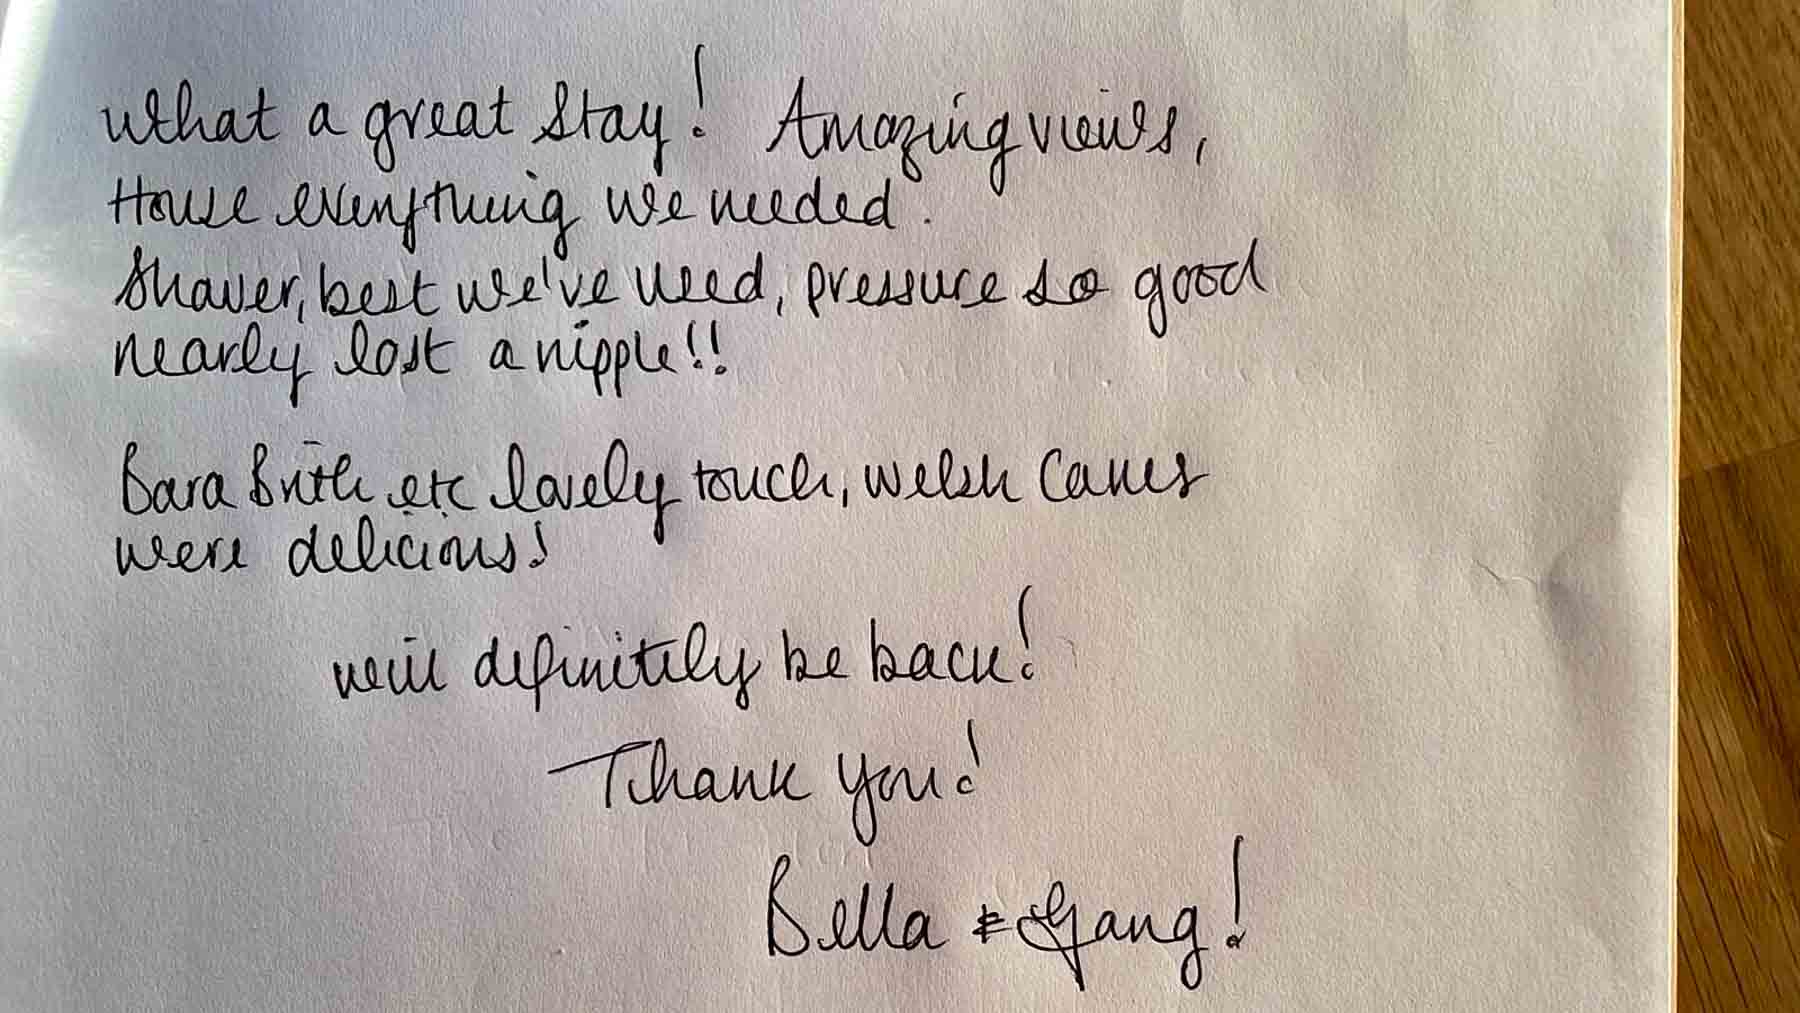 What a great stay! Amazing views,
House everything we needed.
Shower, best we've used, pressure so good
nearly lost a nipple!!
Bara Brith etc lovely touch, welsh cakes
were delicious!
will definitely be back!
Thank you!
Bella & Gang!